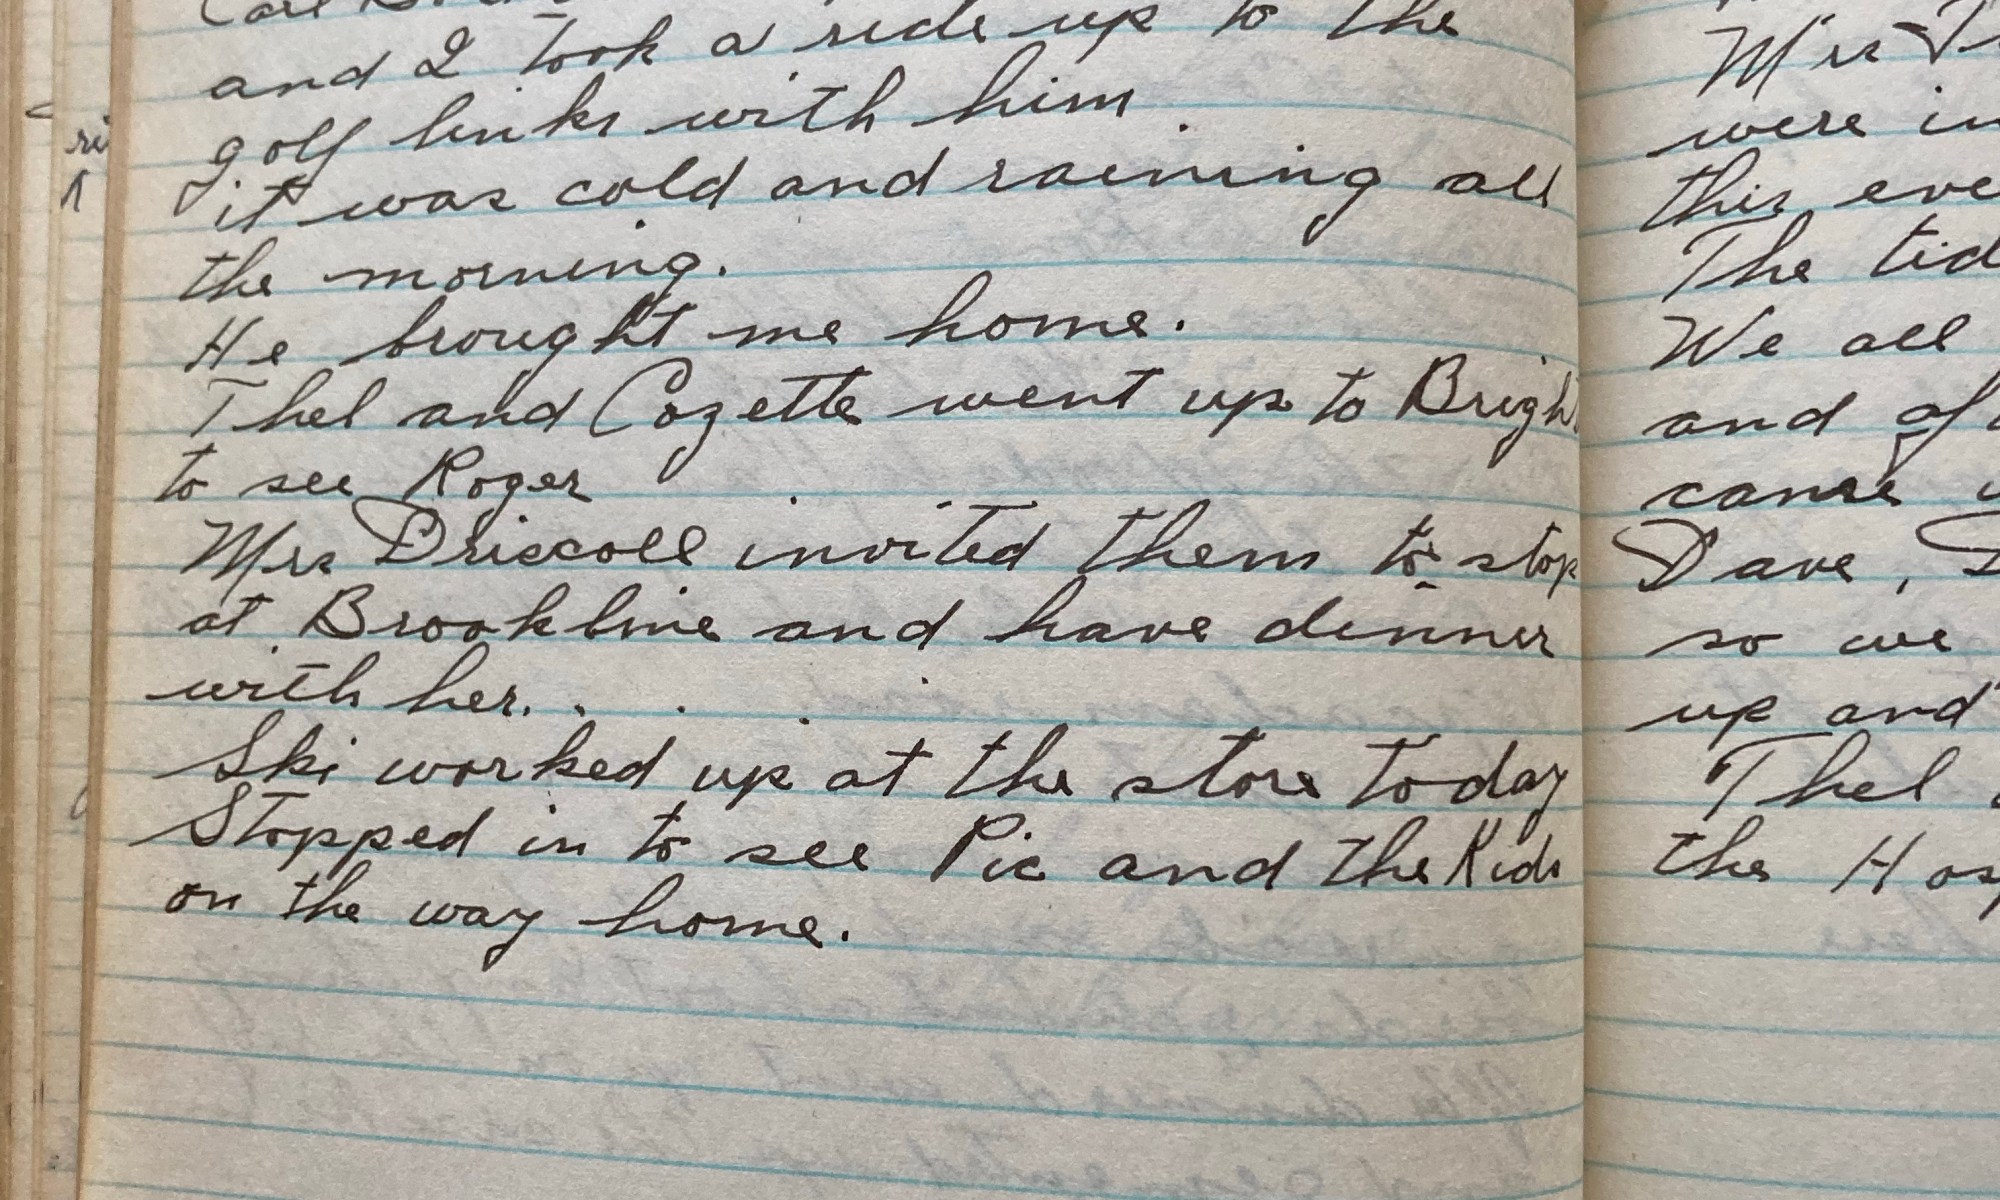 Carl
and I took a ride up to the
golf links with him.
it was cold and raining all
the morning.
He brought me home.
Thel and Cozette went up to Brigh
to see Roger
Mrs Driscoll invited them to stop
at Brookline and have dinner
with her.
Ski worked up at the store today
Stopped in to see Pic and the Kids
on the way home.
Mrs
were in
this eve
The tid
We all
and af
came
Dave, D
so we
up and
Thel
the Hosp